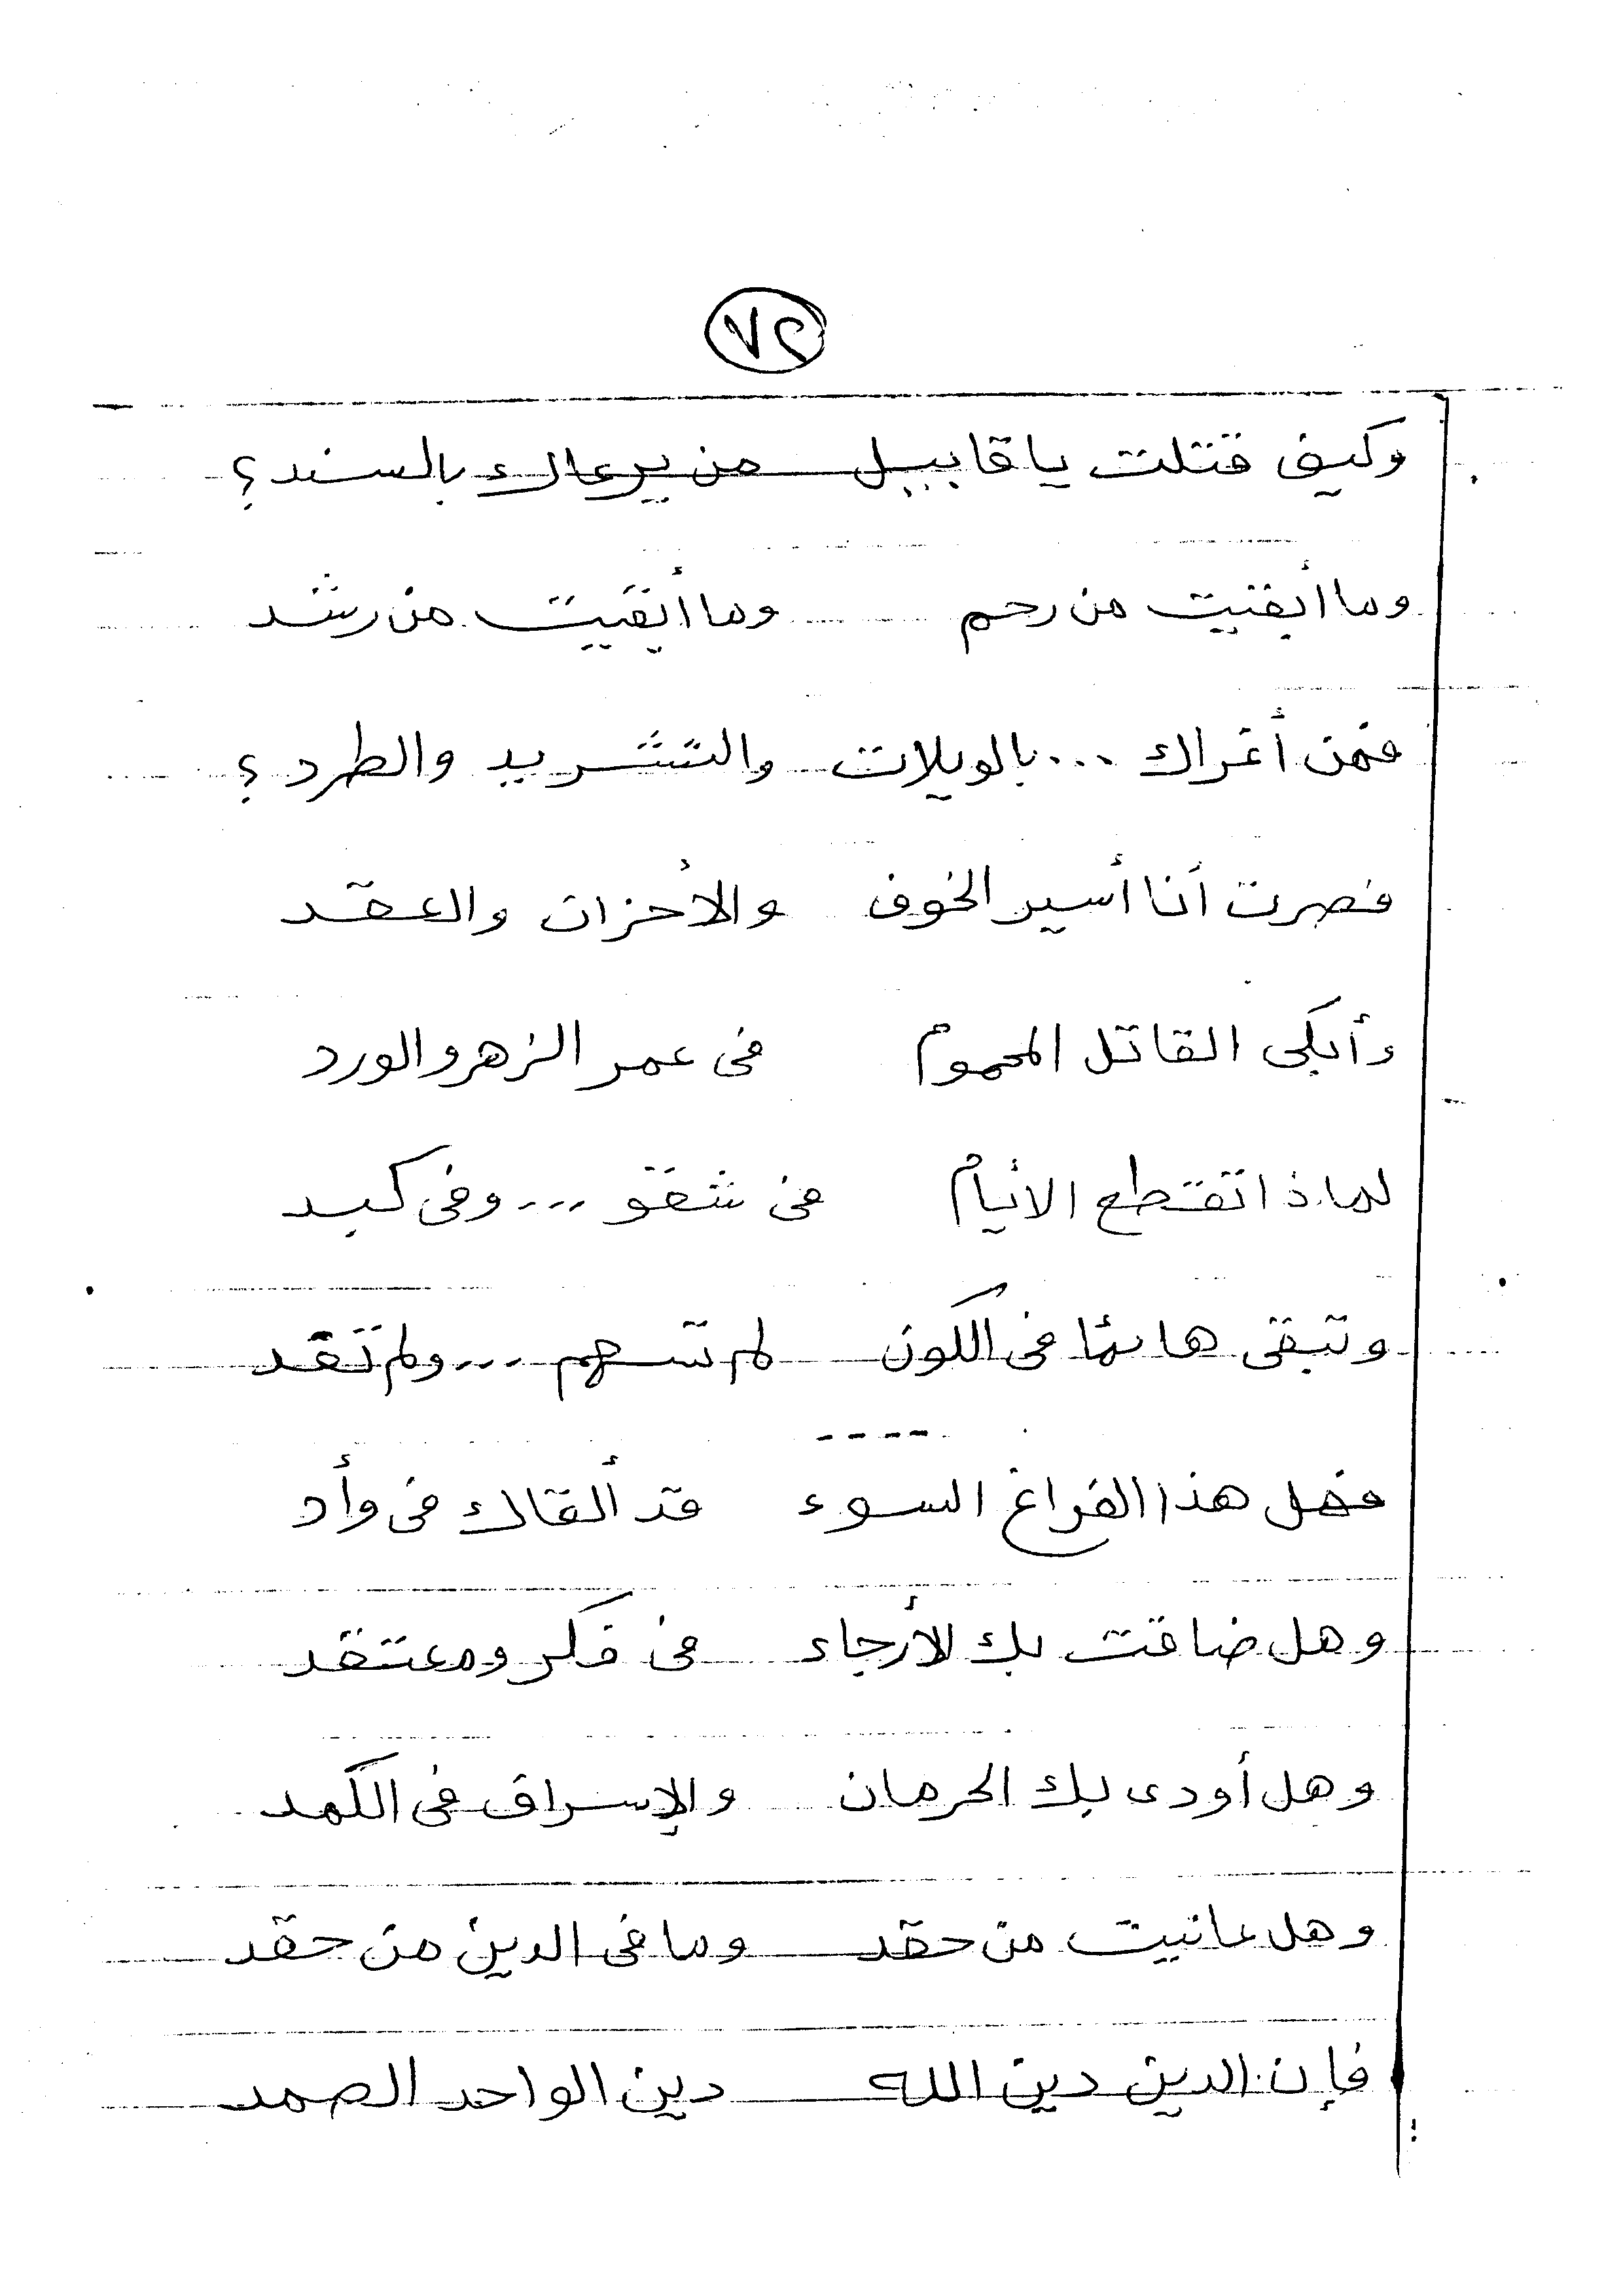 ٧٢
وكيف قتلت يا قابيل من يرعاك بالسند؟
وما أبقيت من رحم وما أبقيت من رشد
فمن أغراك ... بالويلات والتشريد والطرد؟
فصرت أنا أسير الخوف والأحزان والعقد
وأبكى القاتل المحموم فى عمر الزهر والورد
لماذا تقتطع الأيام فى شقو ... وفى كبد
وتبقى هائما فى الكون لم تسهم ... ولم تفد
فهل هذا الفراغ السوء قد ألقاك فى وأد
وهل ضاقت بك الأرجاء فى فكر ومعتقد
وهل أودى بك الحرمان والإسراف فى الكمد
وهل عانيت من حقد وما فى الدين من حقد
فإن الدين دين الله دين الواحد الصمد